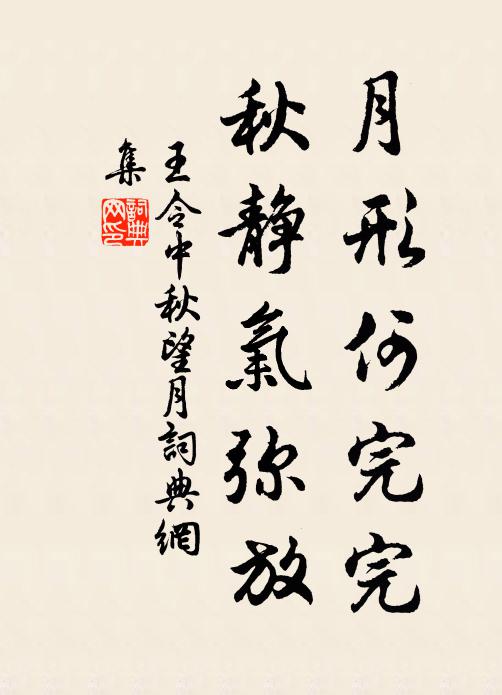 月形何完完
秋静氣弥放
王令中秋望月詞典網
集
詞典網印